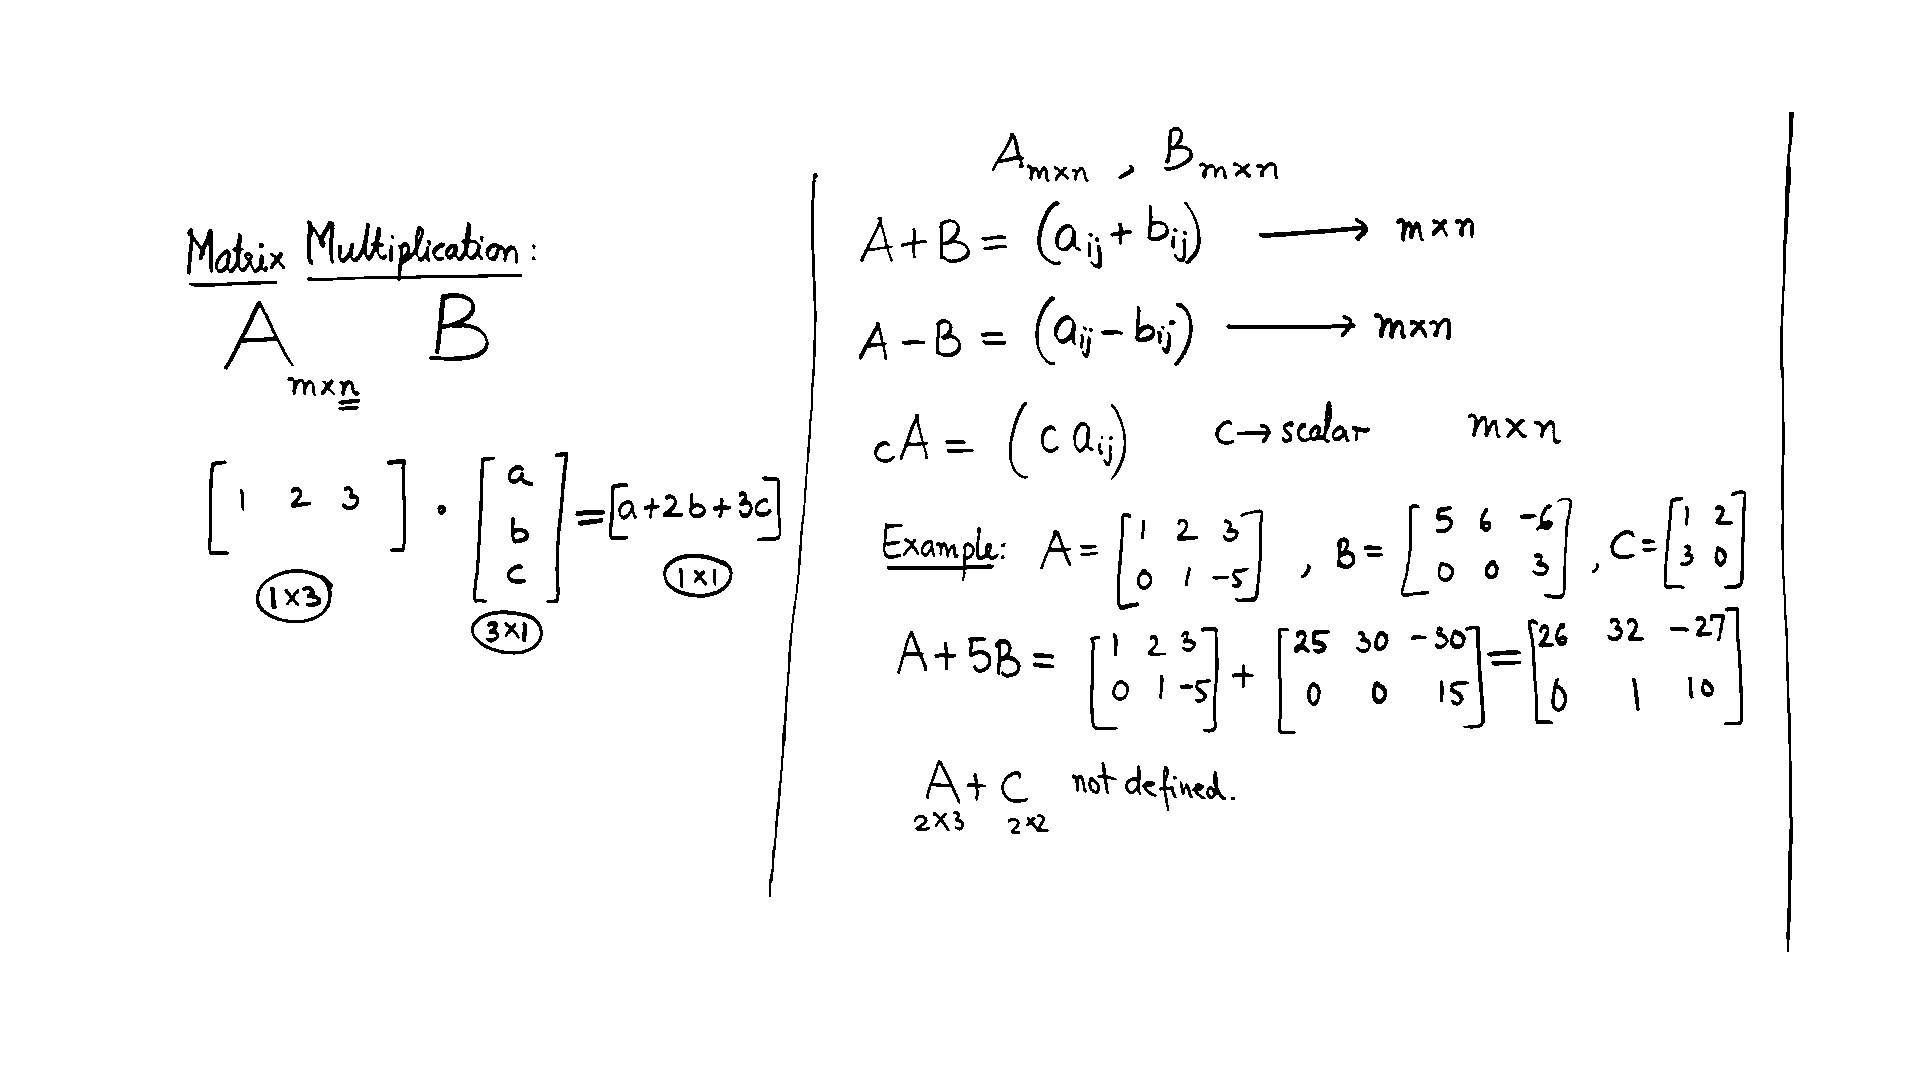 Matrix Multiplication:
A m×n B
[ 1 2 3 ] · [ a b c ] = [a+2b+3c]
1×3 3×1 1×1
A m×n , B m×n
A+B = (aij + bij) ⟶ m×n
A−B = (aij − bij) ⟶ m×n
cA = (c aij) c→scalar m×n
Example: A = [ 1 2 3 ; 0 1 -5 ] , B = [ 5 6 -6 ; 0 0 3 ] , C = [ 1 2 ; 3 0 ]
A+5B = [ 1 2 3 ; 0 1 -5 ] + [ 25 30 -30 ; 0 0 15 ] = [ 26 32 -27 ; 0 1 10 ]
A + C not defined.
2×3 2×2